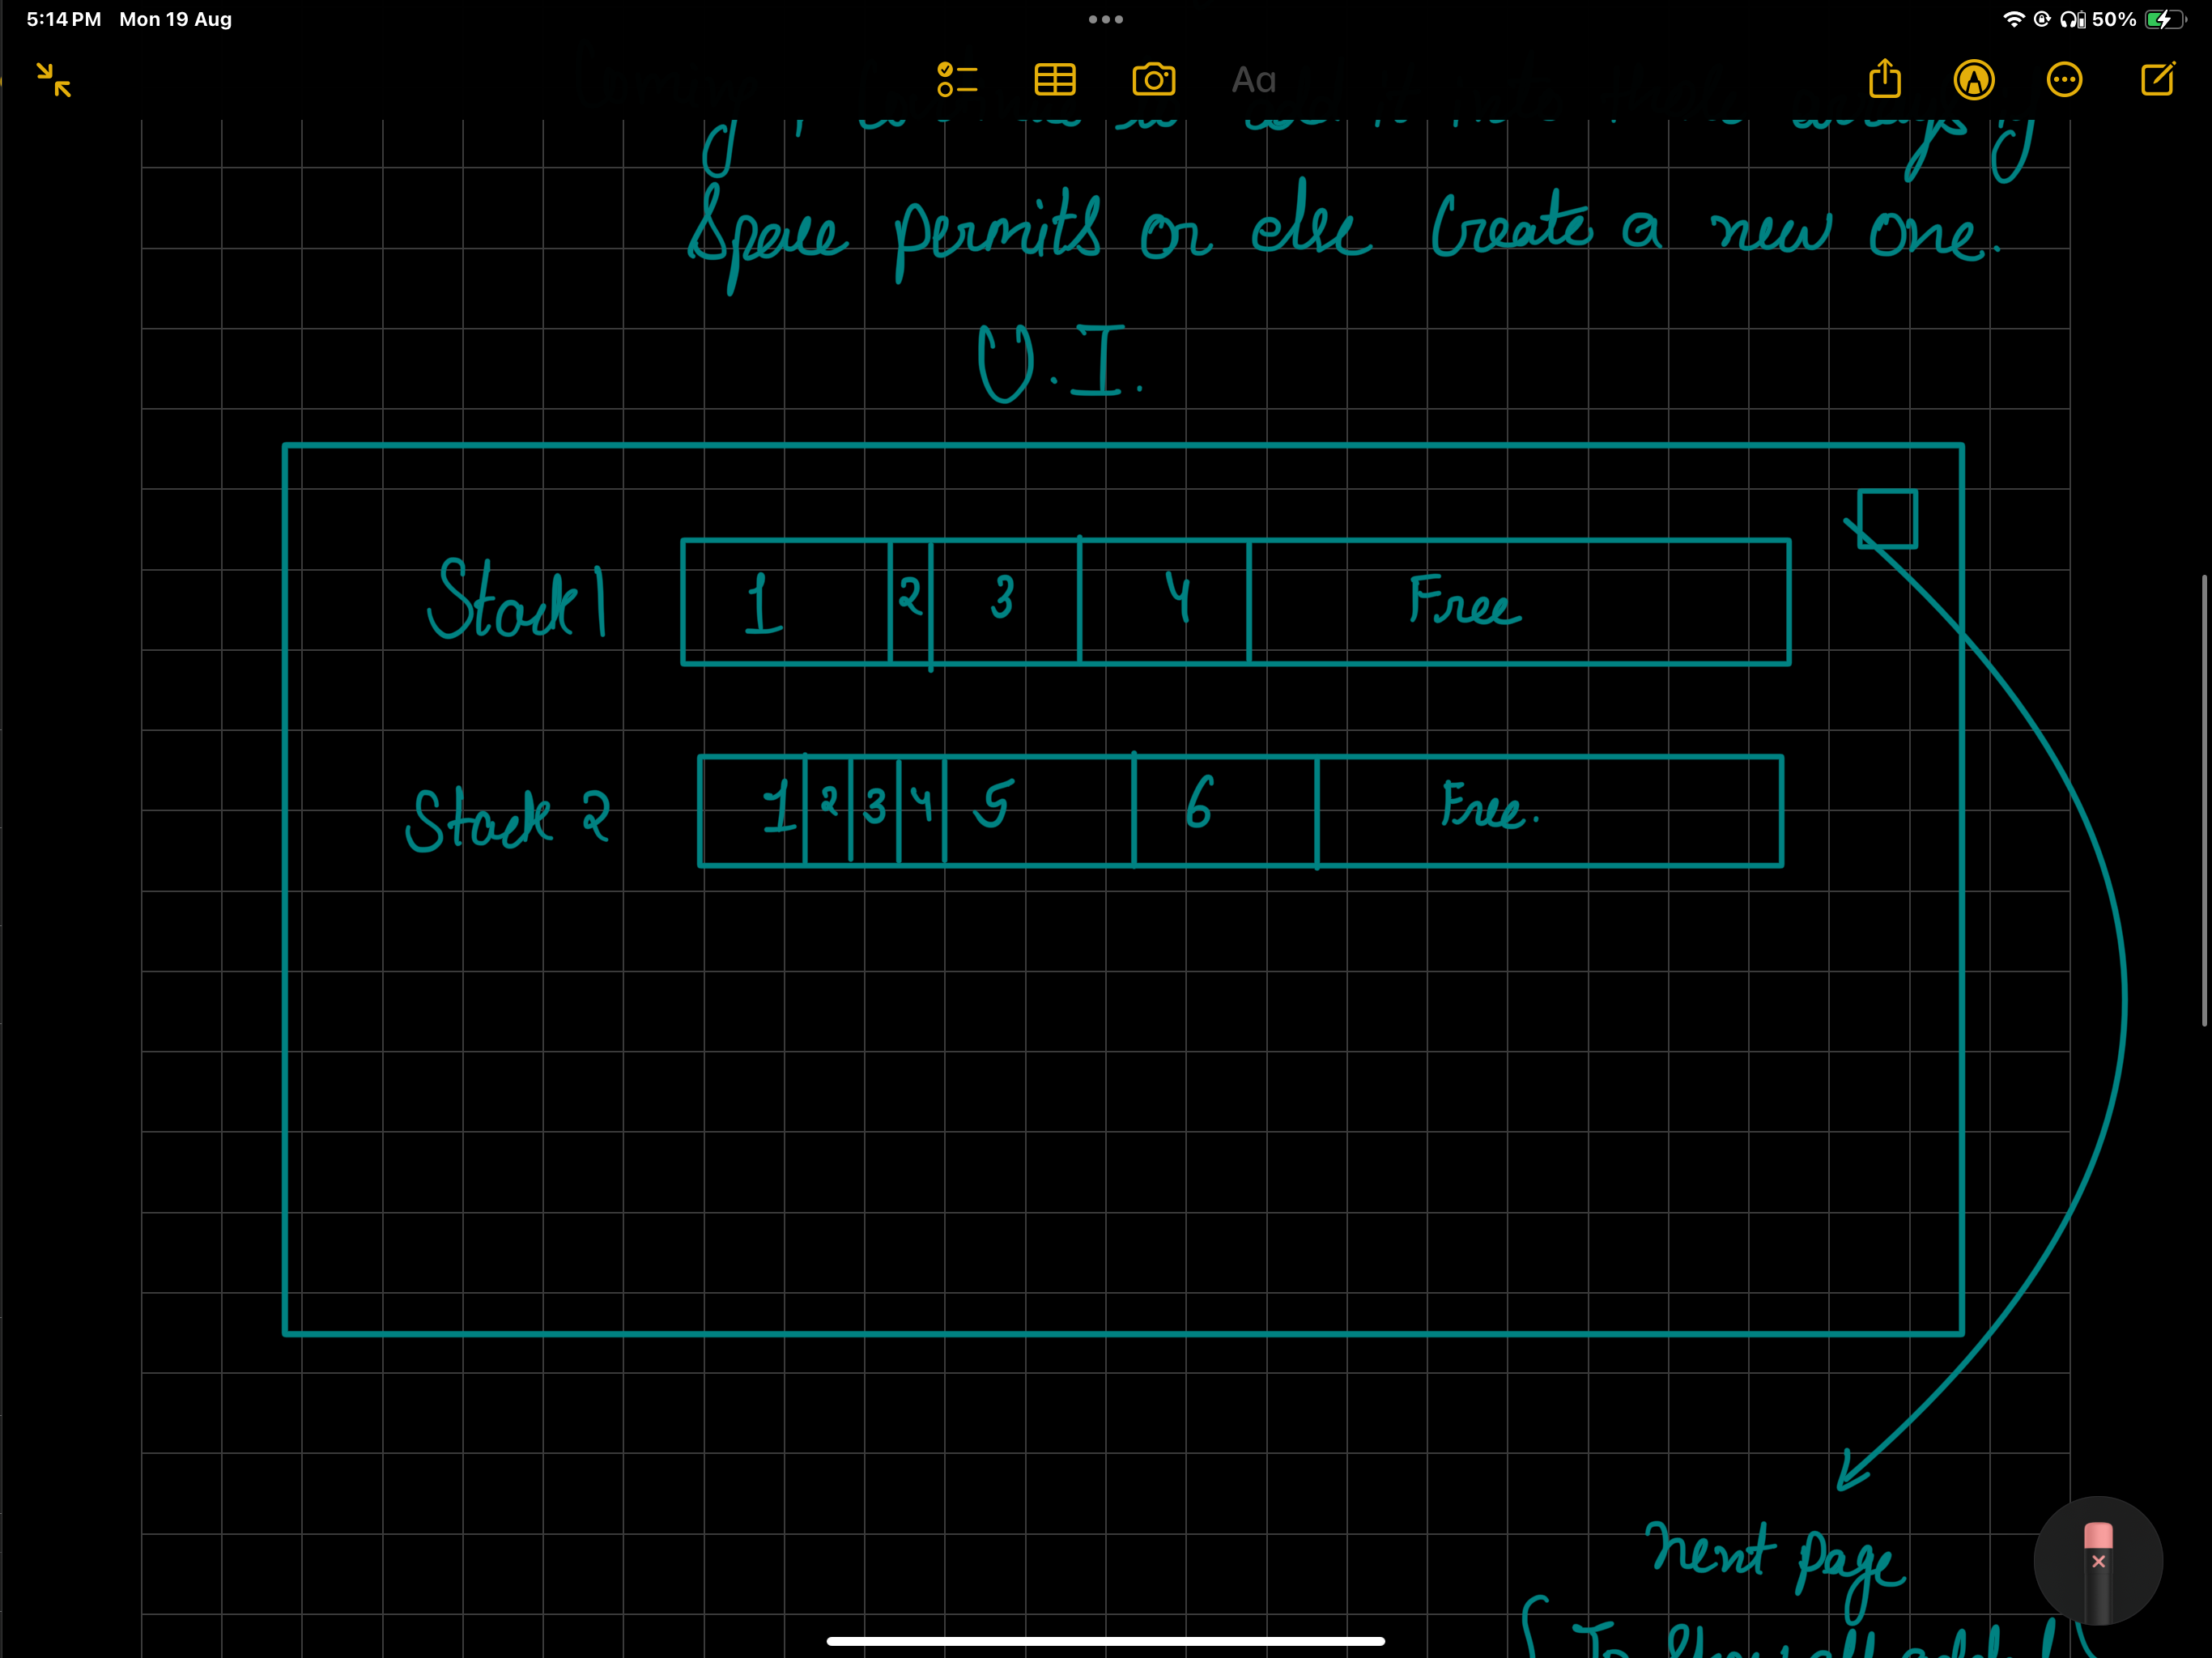 5:14 PM Mon 19 Aug
50%
Aa
Space permits or else Create a new one.
U.I.
Stack 1 1 2 3 4 Free
Stack 2 1 2 3 4 5 6 Free.
next page